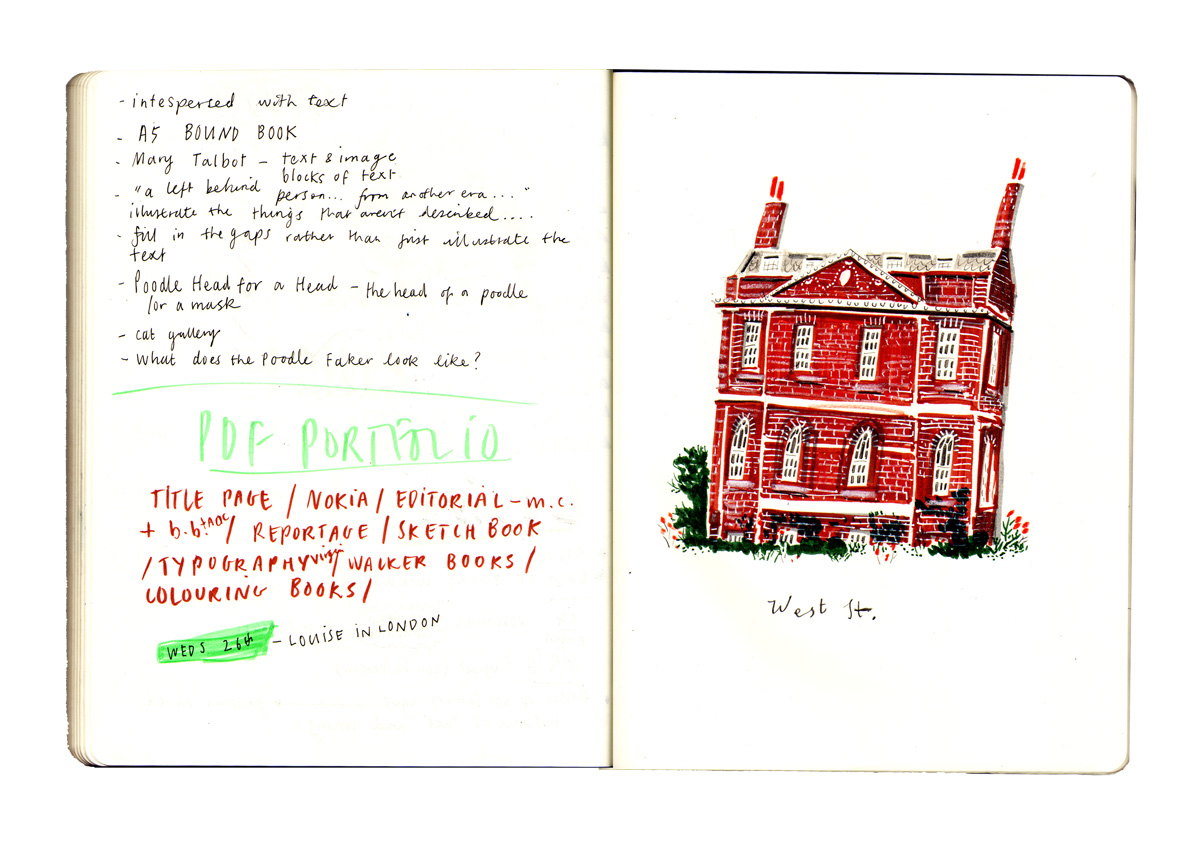 - intesperced with text
- A5 BOUND BOOK
- Mary Talbot - text & image
blocks of text
- "a left behind person... from another era...."
illustrate the things that aren't described....
- fill in the gaps rather than just illustrate the
text
- Poodle Head for a Head - the head of a poodle
/or a mask
- cat gallery
- What does the Poodle Faker look like?
PDF PORTFOLIO
TITLE PAGE / NOKIA / EDITORIAL - m.c.
+ b.b. / REPORTAGE / SKETCH BOOK
/ TYPOGRAPHY / WALKER BOOKS /
COLOURING BOOKS /
WEDS 26th - LOUISE IN LONDON
West St.